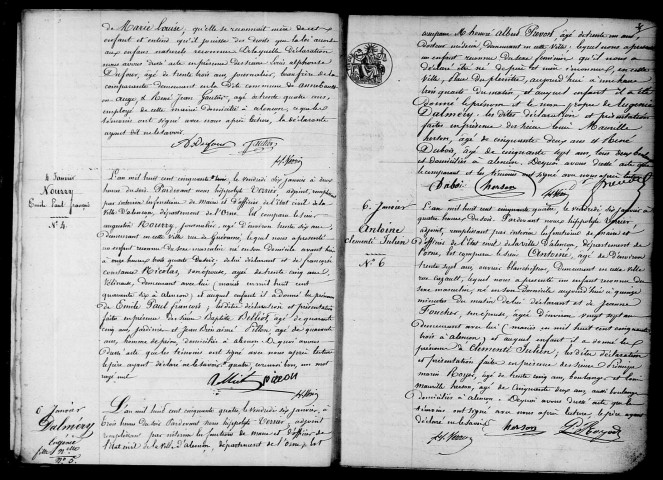 de Marie Louise, qu'elle se reconnait mère de cet
enfant et entend qu'il jouisse des droits que la loi accorde
aux enfans naturels reconnus, de laquelle déclaration
nous avons dressé acte en présence des sieurs Louis alphonse
Dufour, âgé de trente trois ans, journalier, beau frère de la
comparante demeurant en la dite commune de
en auge, & René Jean Gautier, âgé de trente quatre ans,
employé de cette mairie domicilié à alençon, lesquels
témoins ont signé avec nous après lecture, la déclarante
ayant dit ne le savoir.
4 Janvier
Nourry
Emile Paul François
N° 4.
L'an mil huit cent cinquante, le vendredi six janvier à deux
heures du soir. Pardevant nous hippolyte Verrier adjoint, remplissant
par intérim les fonctions de maire et d'officier de l'état civil de la
Ville d'alençon, département de l'Orne, est comparu le sieur
augustin Nourry, journalier, âgé d'environ trente six ans
demeurant en cette ville rue de, lequel nous a présenté
un enfant reconnu du sexe masculin né en son domicile avant hier
à onze heures trois quarts du soir, de lui déclarant et de françoise
constance Nicolas, son épouse, âgée de trente cinq ans
demeurant avec lui (mariés en mil huit cent
quarante six à alençon) et auquel enfant il a donné les prénoms
de Emile Paul françois; les dites déclaration et présentation
faites en présence des sieurs Baptiste Belliot, âgé de quarante
cinq ans, jardinier et Jean Bon aimé Pillon, âgé de quarante
ans, homme de peine, domiciliés à alençon. De quoi avons
dressé acte que les témoins ont signé avec nous après lecture
le père ayant déclaré ne le savoir.
6 Janvier
Dalmery
Eugénie
fille n.elle
N° 5.
L'an mil huit cent cinquante quatre, le vendredi six janvier, à
trois heures du soir. Pardevant nous hippolyte Verrier, adjoint
remplissant par intérim les fonctions de maire et d'officier de
l'état civil de la Ville d'alençon, département de l'Orne, est
comparu M. honoré Albert Prevost, âgé de trente un ans,
Docteur médecin, demeurant en cette ville, lequel nous a présenté
un enfant reconnu du sexe féminin, qu'il nous a
déclaré être né de père et mère inconnus, en cette
ville, place du, aujourd'hui à une heure
trois quarts du matin, et auquel enfant il a
donné le prénom et le nom propre de Eugénie
Dalmery; les dites déclaration et présentation
faites en présence des sieurs Louis Marcelle
herson, âgé de cinquante deux ans et René
Dubois, âgé de cinquante sept ans, tous deux
et domiciliés à alençon. De quoi avons dressé acte que
le comparant et les témoins ont signé avec nous après lecture.
Dubois herson
6. Janvier
Antoine
Clementé Julien
N° 6
L'an mil huit cent cinquante quatre, le vendredi six janvier à
quatre heures du soir. Pardevant nous hippolyte Verrier
adjoint, remplissant par intérim les fonctions de maire et
d'officier de l'état civil de la ville d'alençon, département de
l'orne, est comparu le sieur Antoine, âgé d'environ
trente sept ans, ouvrier blanchisseur, demeurant en cette ville
rue Cazault, lequel nous a présenté un enfant reconnu du
sexe masculin, né en son domicile aujourd'hui à quinze
minutes du matin de lui déclarant et de Jeanne
Foucher, son épouse, âgée d'environ vingt sept ans
demeurant avec lui (mariés en mil huit cent cinquante
trois à alençon) et auquel enfant il a donné les
prénoms de Clementé Julien; les dites déclaration
et présentation faites en présence des sieurs
marin Rozel, âgé de trente cinq ans, boulanger et Louis
marcelle herson, âgé de cinquante deux ans aussi boulanger
domiciliés à alençon. De quoi avons dressé acte que les
témoins ont signé avec nous après lecture, le père ayant
déclaré ne le savoir.
herson